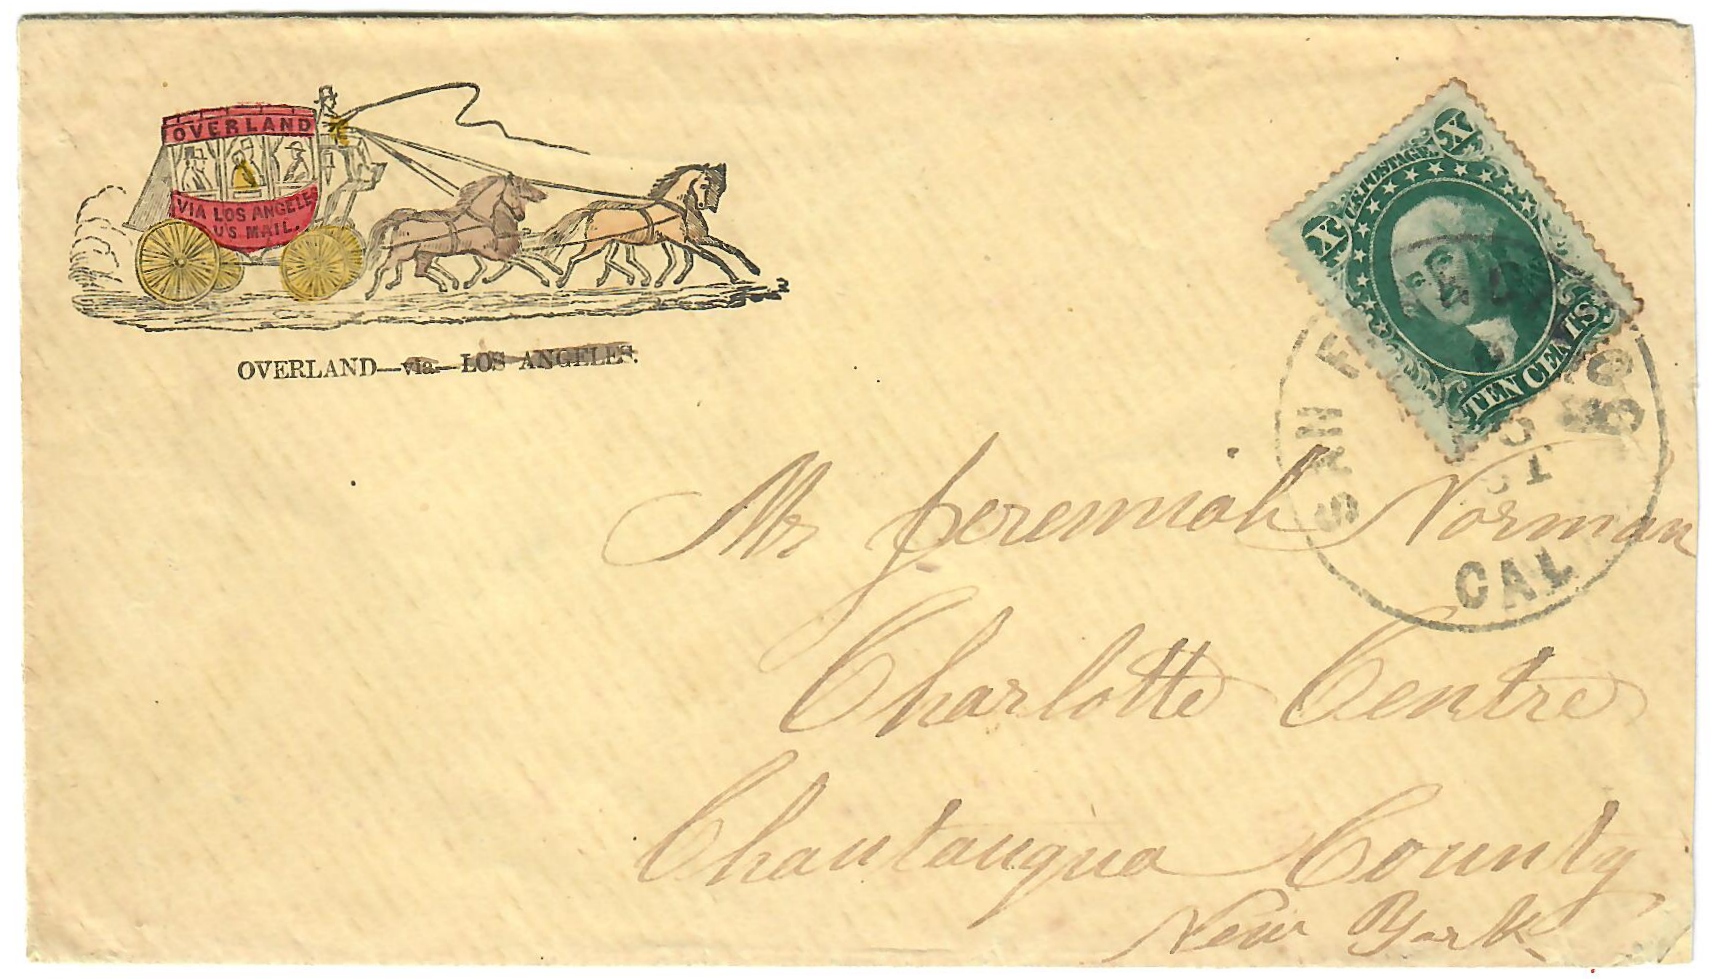 OVERLAND
VIA LOS ANGELES
U S MAIL.
OVERLAND—via—LOS ANGELES.
X X
U.S. POSTAGE.
TEN CENTS
SAN F CO
CAL
Mr Jeremiah Norman
Charlotte Centre
Chautauqua County
New York